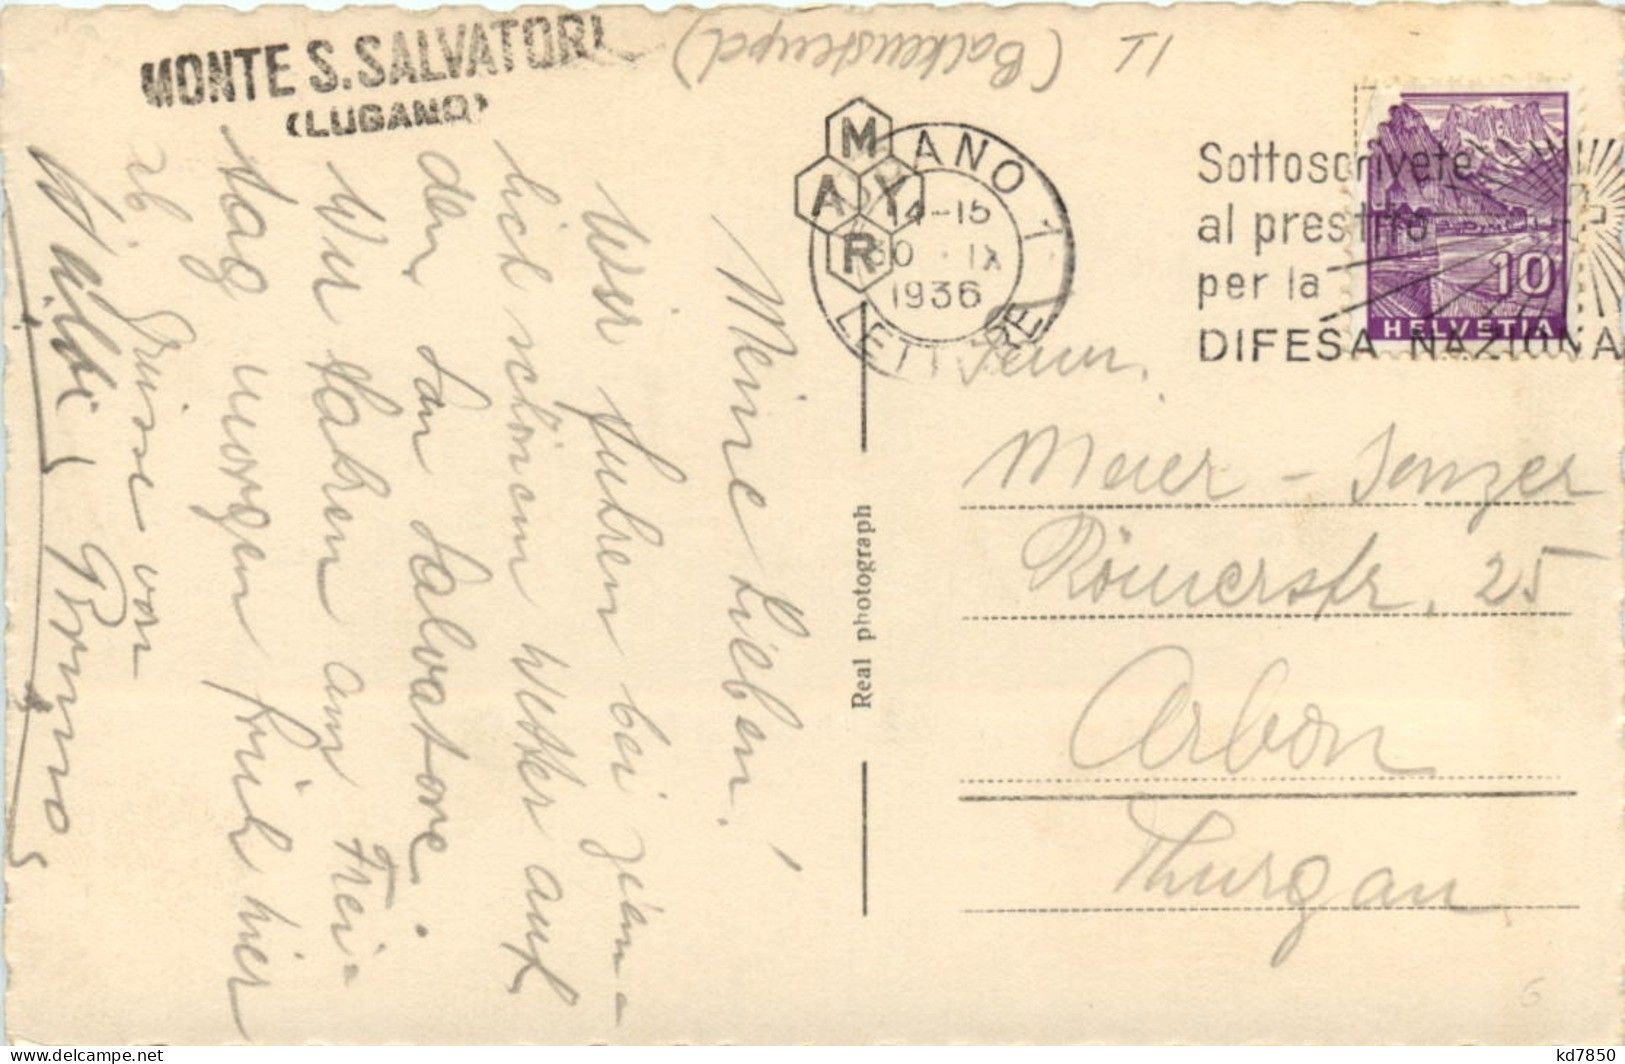 MONTE S. SALVATORE
(LUGANO)
(Balkenstempel)
MAYR
ANO 1
14-15
30. IX
1936
LETTERE
Sottoscrivete
al prestito
per la
DIFESA NAZIONA
10
HELVETIA
Meine Lieben!
Wir fuhren bei ziem-
lich schönem Wetter auf
den San Salvatore.
Wir haben am Frei-
tag morgen früh hier
ab Grüsse von
Bruno
Real photograph
Fam.
Meier - Senzer
Römerstr. 25
Arbon
Thurgau
6
kd7850